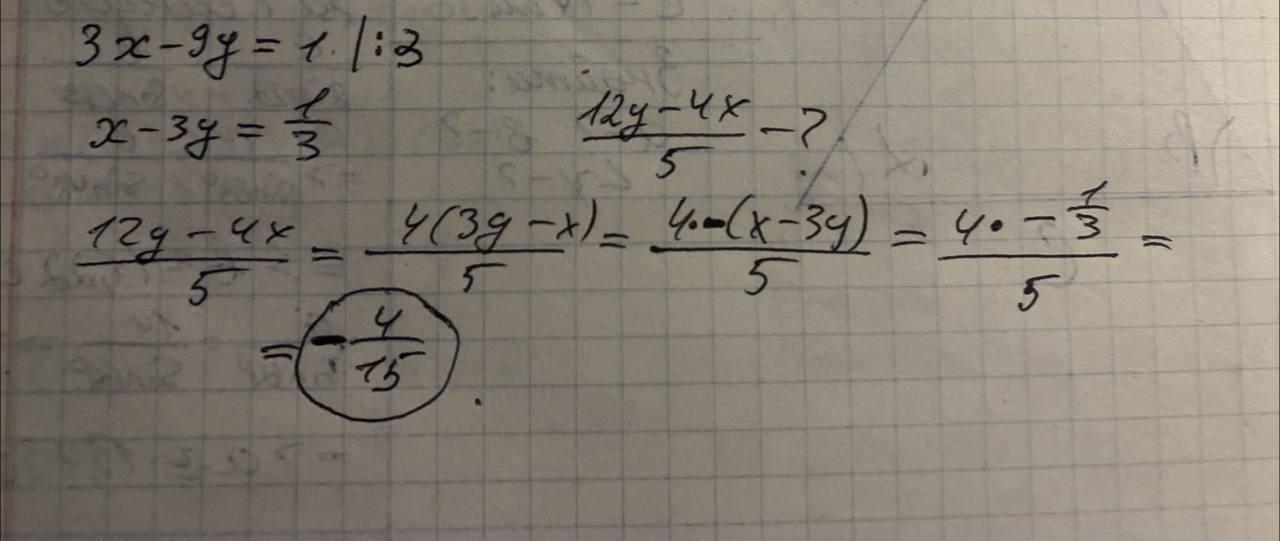 3x - 9y = 1. | : 3
x - 3y = 1/3
(12y - 4x)/5 - ?
(12y - 4x)/5 = 4(3y - x)/5 = 4·-(x - 3y)/5 = (4· - 1/3)/5 =
= - 4/15.